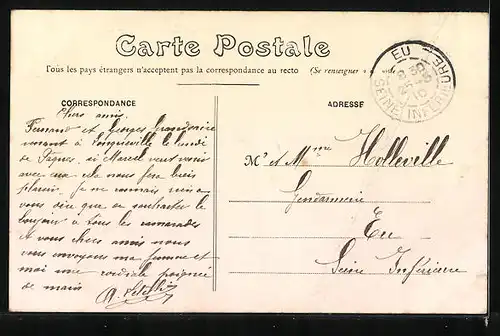 Carte Postale
Tous les pays étrangers n'acceptent pas la correspondance au recto (Se renseigner
EU
SEINE INFERIEURE
CORRESPONDANCE
ADRESSE
Chers amis.
Fernand et Georges
viennent à le lundi
de Pâques, si Marcel veut venir
avec eux cela nous fera bien
plaisir. Je ne connais rien a
vous dire que de souhaiter le
bonjour à tous les camarades
et vous chers amis nous
vous envoyons ma femme et
moi une cordiale poignée
de main
Mr et Mme Holleville
Gendarmerie
Eu
Seine Inférieure